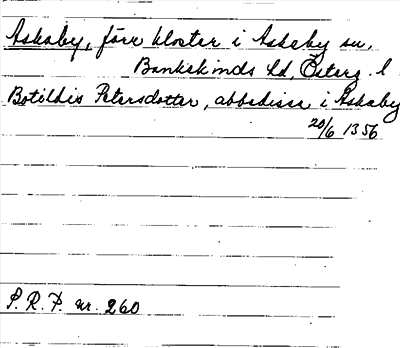 Askaby, förr kloster i Askeby sn,
Bankekinds hd, Österg. l
Botildis Petersdotter, abbedissa i Askaby
20/6 1356
S. R. P. nr. 260